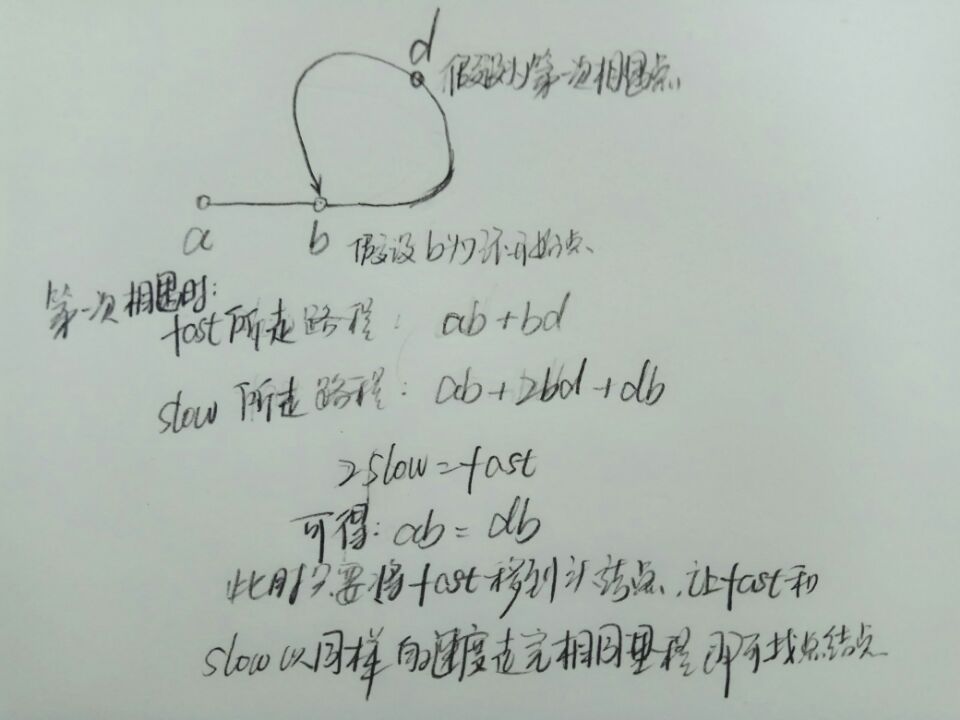 d
假设d为第一次相遇点
a
b 假设b为环开始点
第一次相遇时:
fast所走路程: ab+bd
slow所走路程: ab+2bd+db
2slow=fast
可得:ab=db
此时只要将fast移到头结点,让fast和
slow以同样的速度走完相同里程即可找点结点